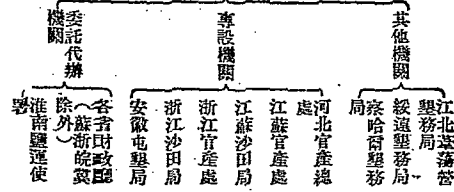 其他機關
江北葦蕩營
墾務局
綏遠墾務局
察哈爾墾務
局
專設機關
河北官產總
處
江蘇官產處
江蘇沙田局
浙江官產處
浙江沙田局
安徽屯墾局
委託代辦
機關
各省財政廳
（蘇浙皖冀
除外）
淮南鹽運使
署